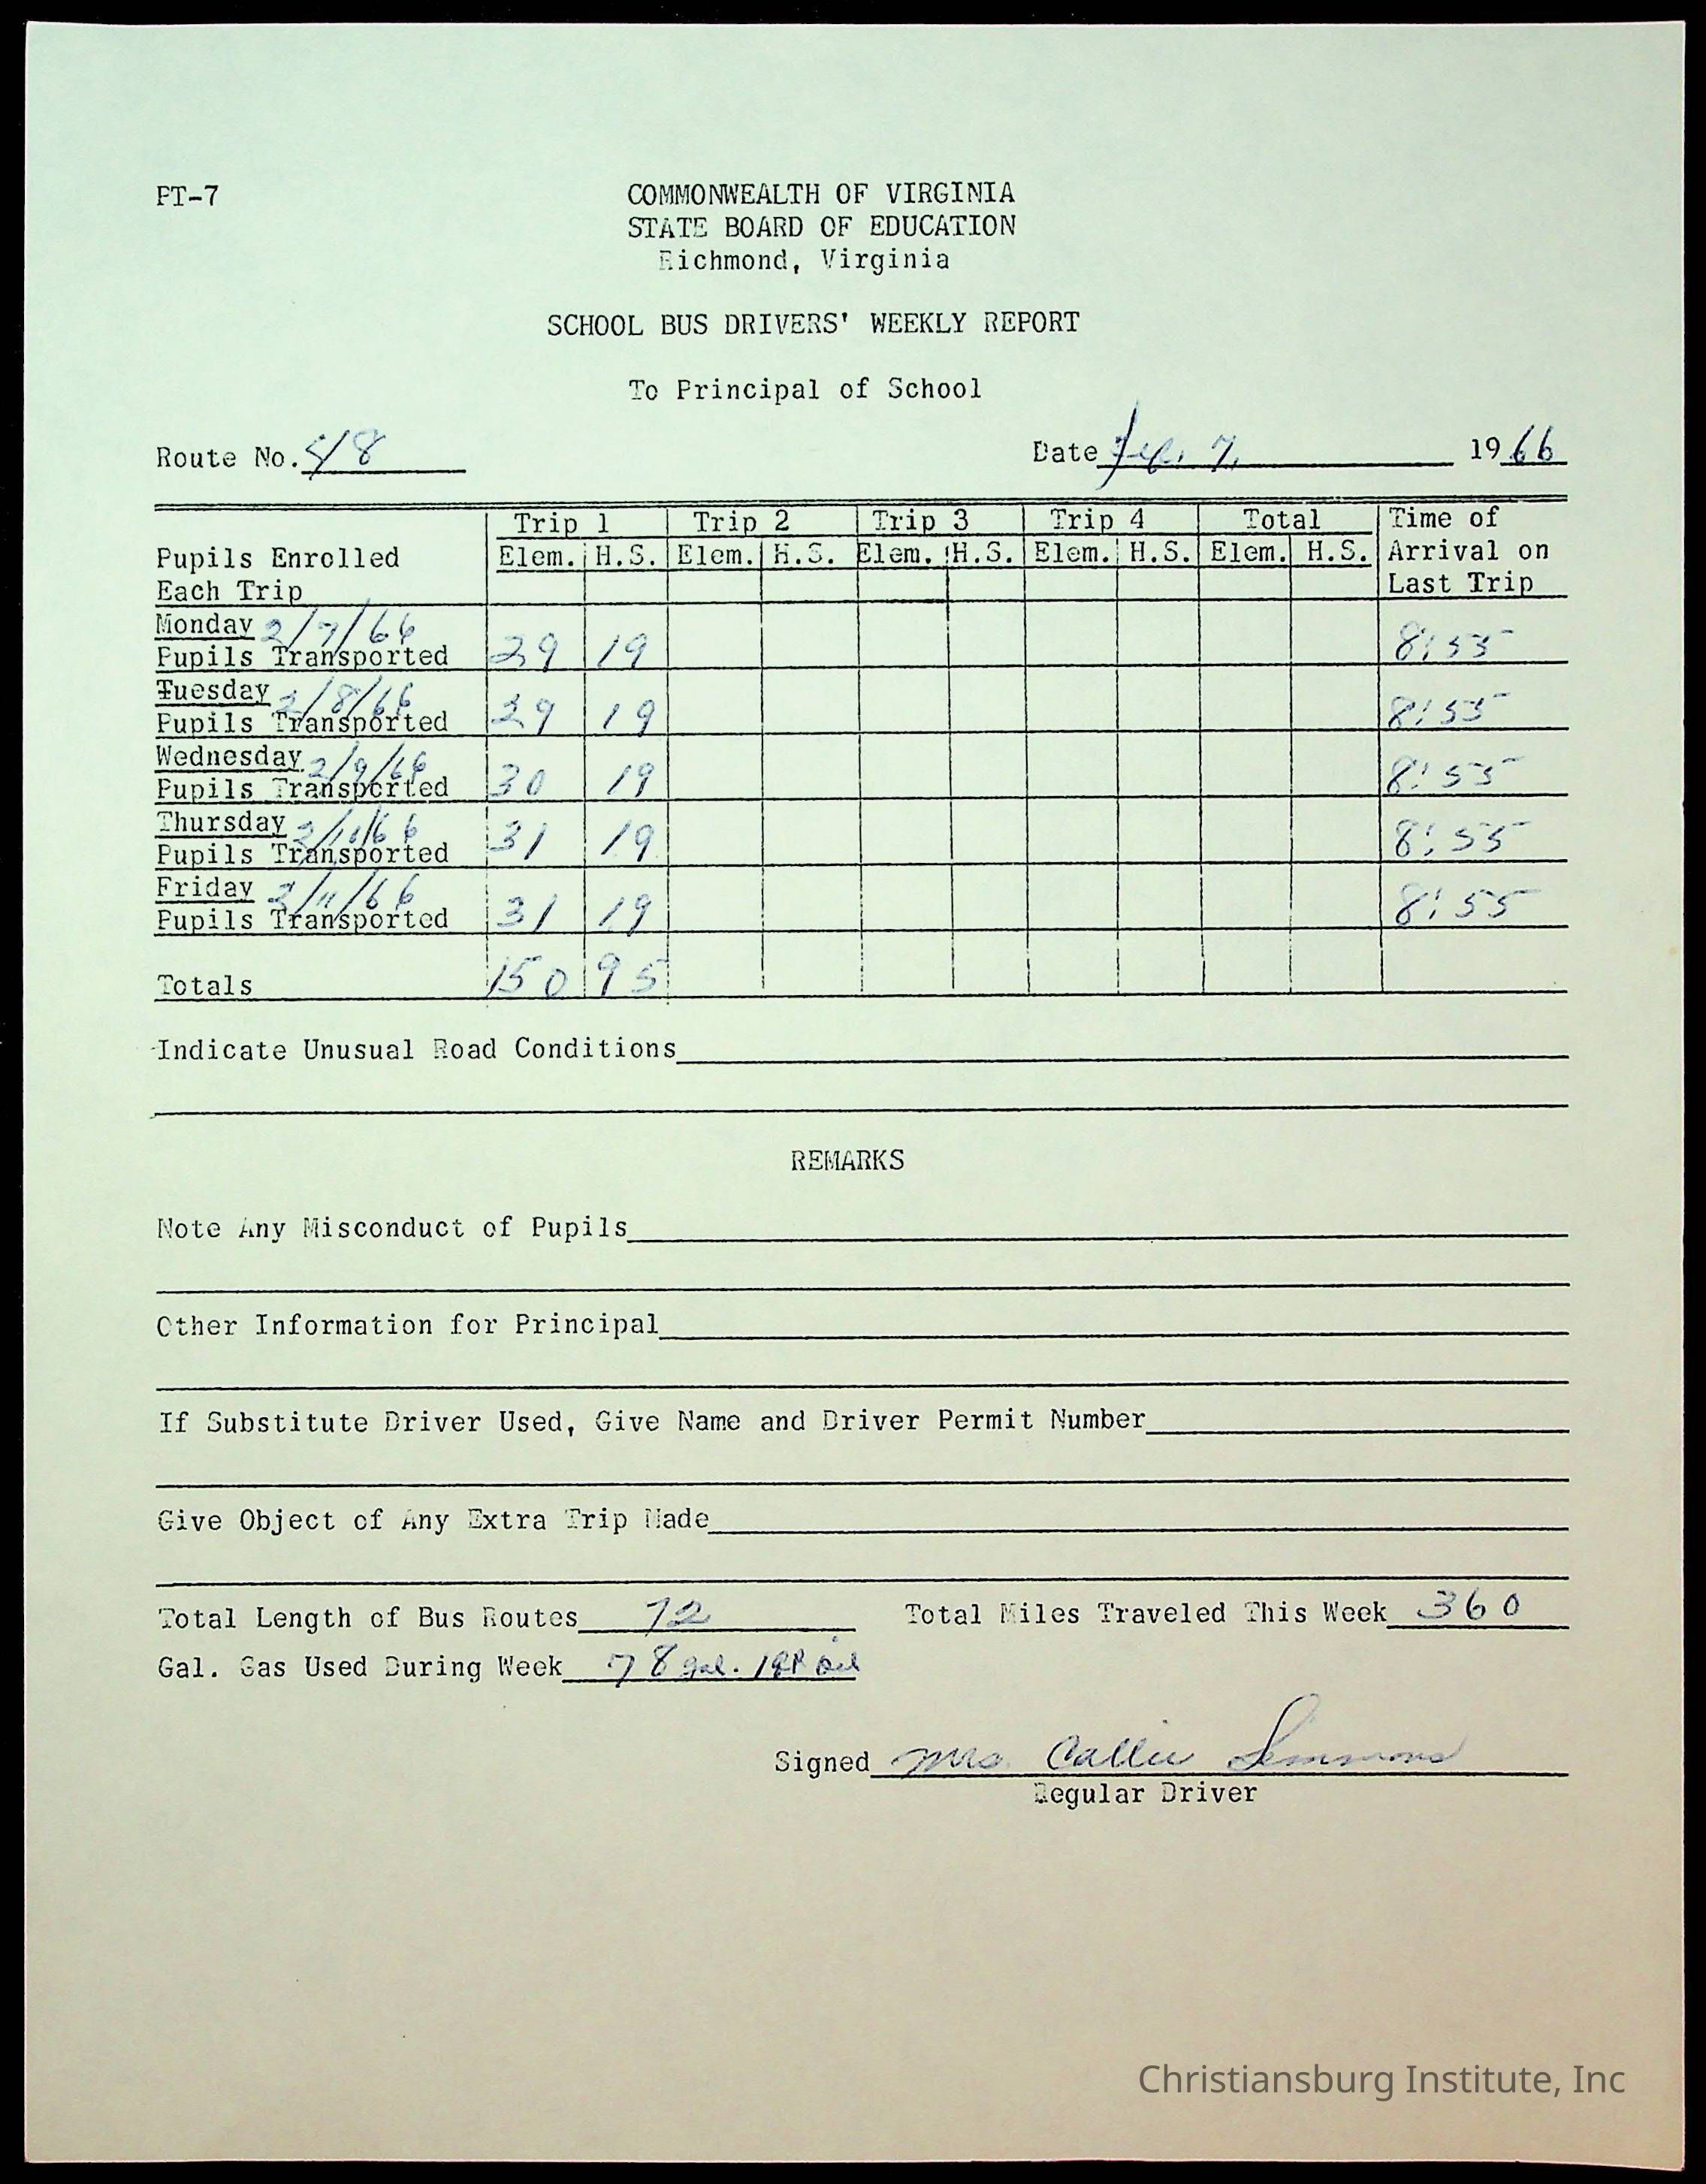 PT-7
COMMONWEALTH OF VIRGINIA
STATE BOARD OF EDUCATION
Richmond, Virginia
SCHOOL BUS DRIVERS' WEEKLY REPORT
To Principal of School
Route No. 518 Date Feb. 7, 1966
Trip 1 Trip 2 Trip 3 Trip 4 Total Time of
Pupils Enrolled Elem. H.S. Elem. H.S. Elem. H.S. Elem. H.S. Elem. H.S. Arrival on
Each Trip Last Trip
Monday 2/7/66
Pupils Transported 29 19 8:55
Tuesday 2/8/66
Pupils Transported 29 19 8:55
Wednesday 2/9/66
Pupils Transported 30 19 8:55
Thursday 2/10/66
Pupils Transported 31 19 8:55
Friday 2/11/66
Pupils Transported 31 19 8:55
Totals 150 95
Indicate Unusual Road Conditions
REMARKS
Note Any Misconduct of Pupils
Other Information for Principal
If Substitute Driver Used, Give Name and Driver Permit Number
Give Object of Any Extra Trip Made
Total Length of Bus Routes 72 Total Miles Traveled This Week 360
Gal. Gas Used During Week 78 gal. 1 qt oil
Signed Mrs. Callie Simmons
Regular Driver
Christiansburg Institute, Inc